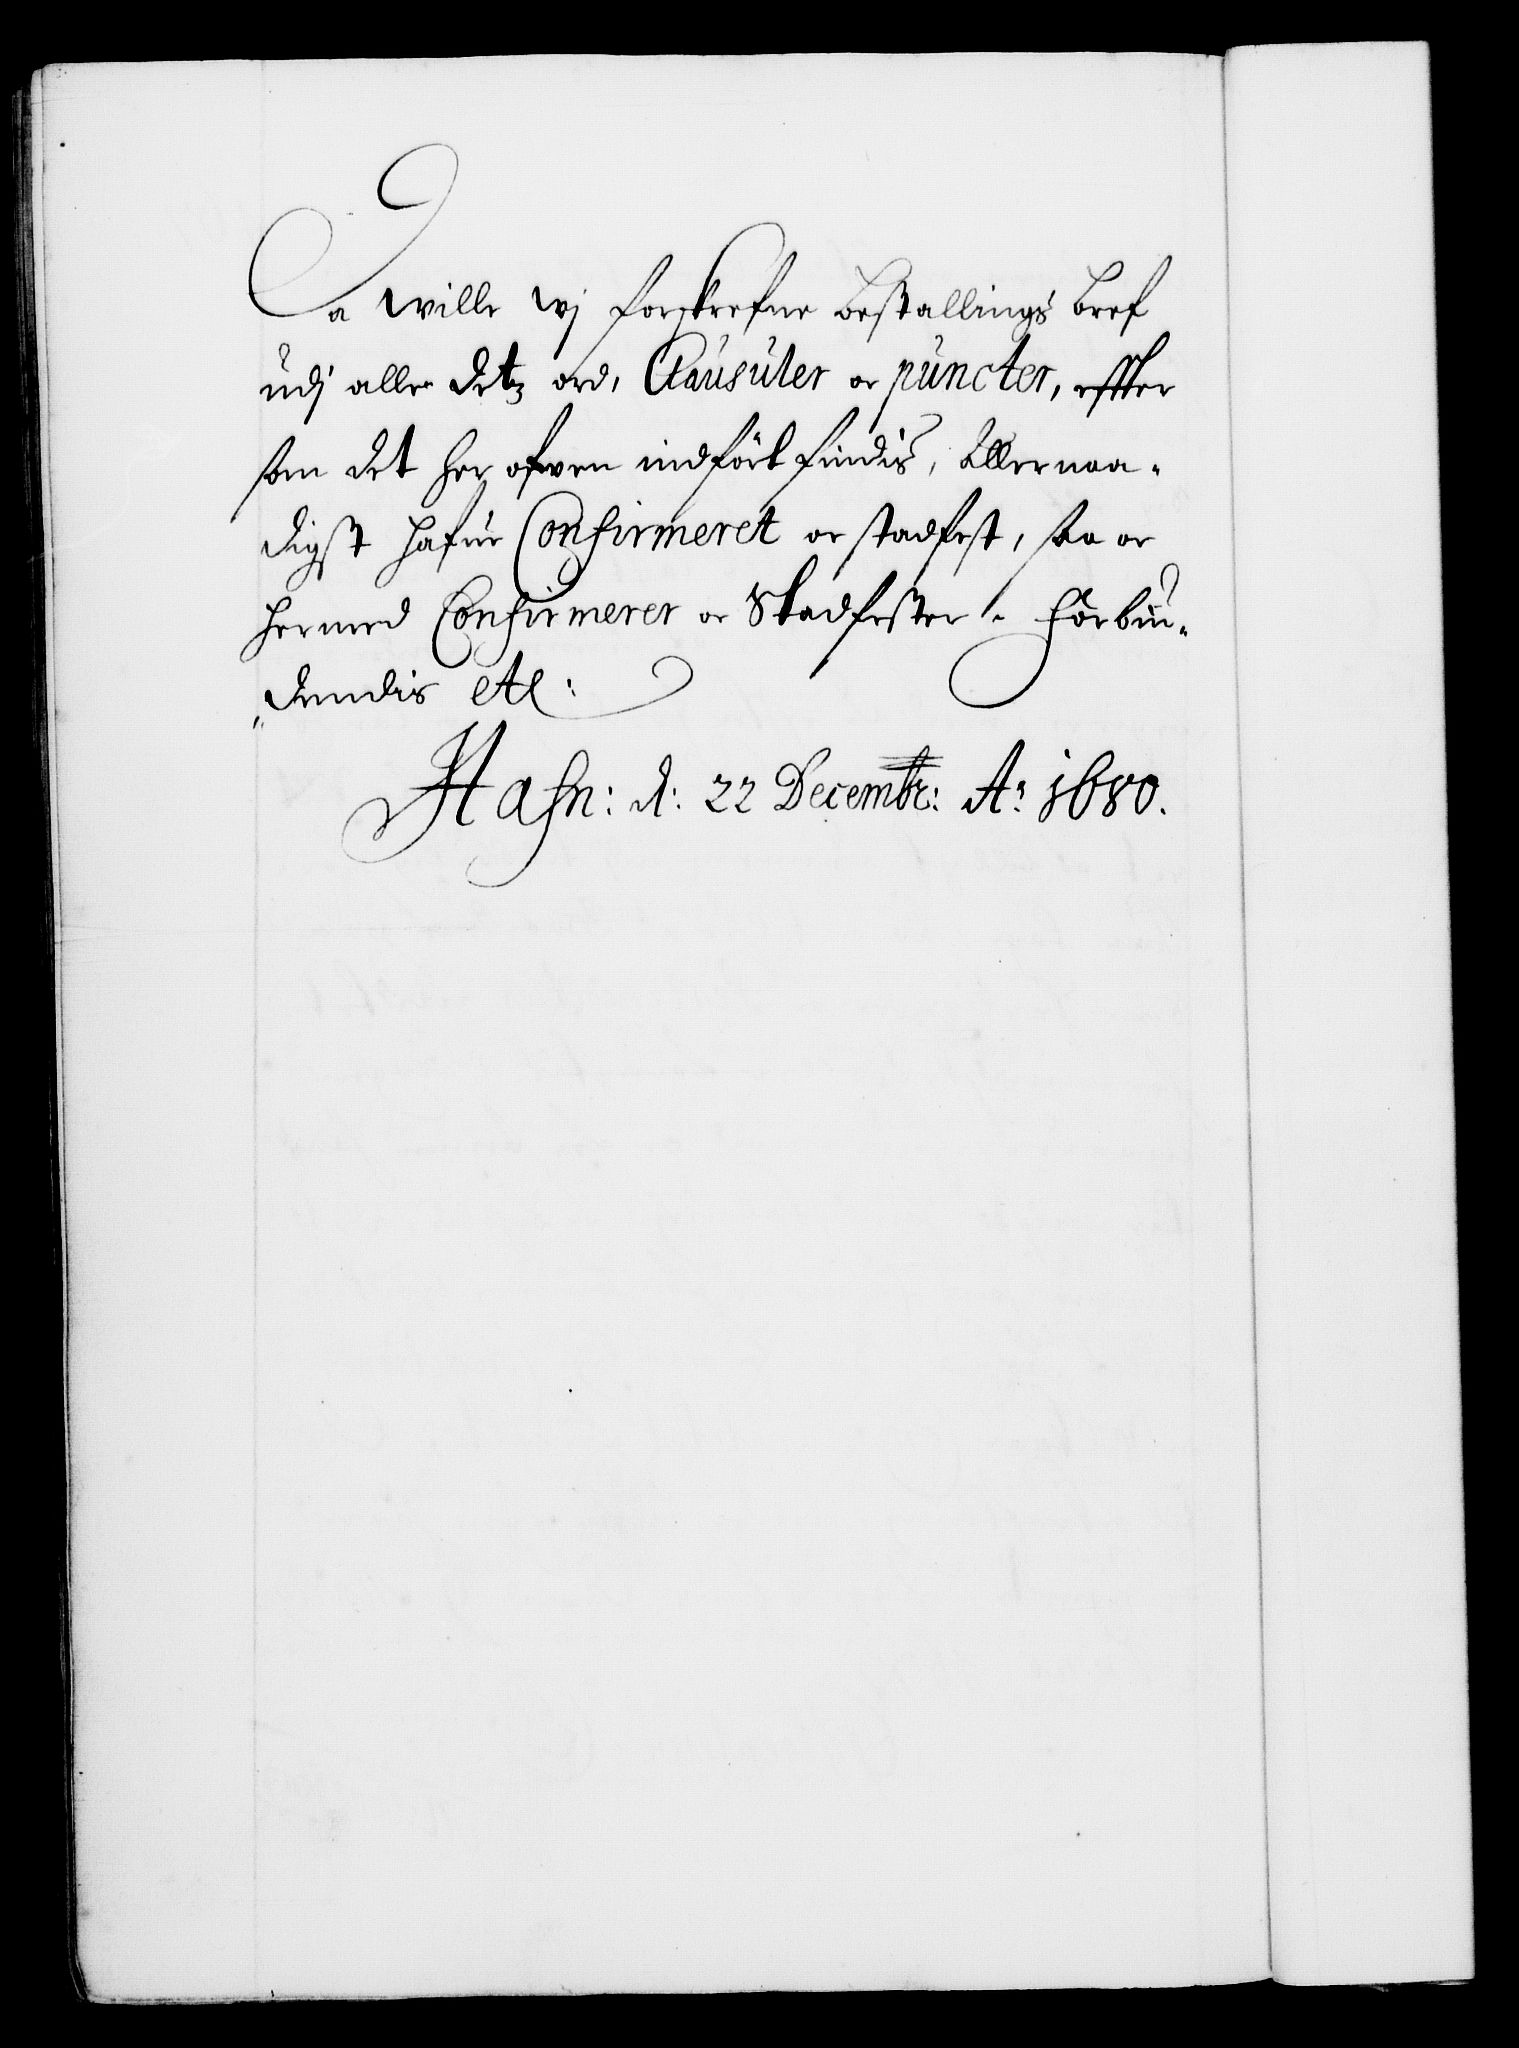 Da wille wj forskrefne Bestallings bref
udj alle detz ord, Clausuler oc puncter, effter
som det her ofven indfört findis, Allernaa-
digst hafue Confirmeret oc stadfest, saa oc
hermed Confirmerer oc Stadfester. Forbiu-
dendis etc:
Hafn: d: 22 Decembr: Ao 1680.